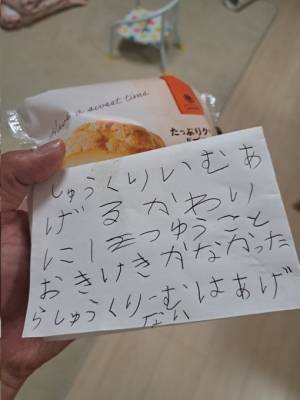 Have a sweet time
たっぷりク
しゅうくりいむあ
げるかわり
に一つゆうこと
おきけきかなかった
らしゅうくりーむはあげ
ない